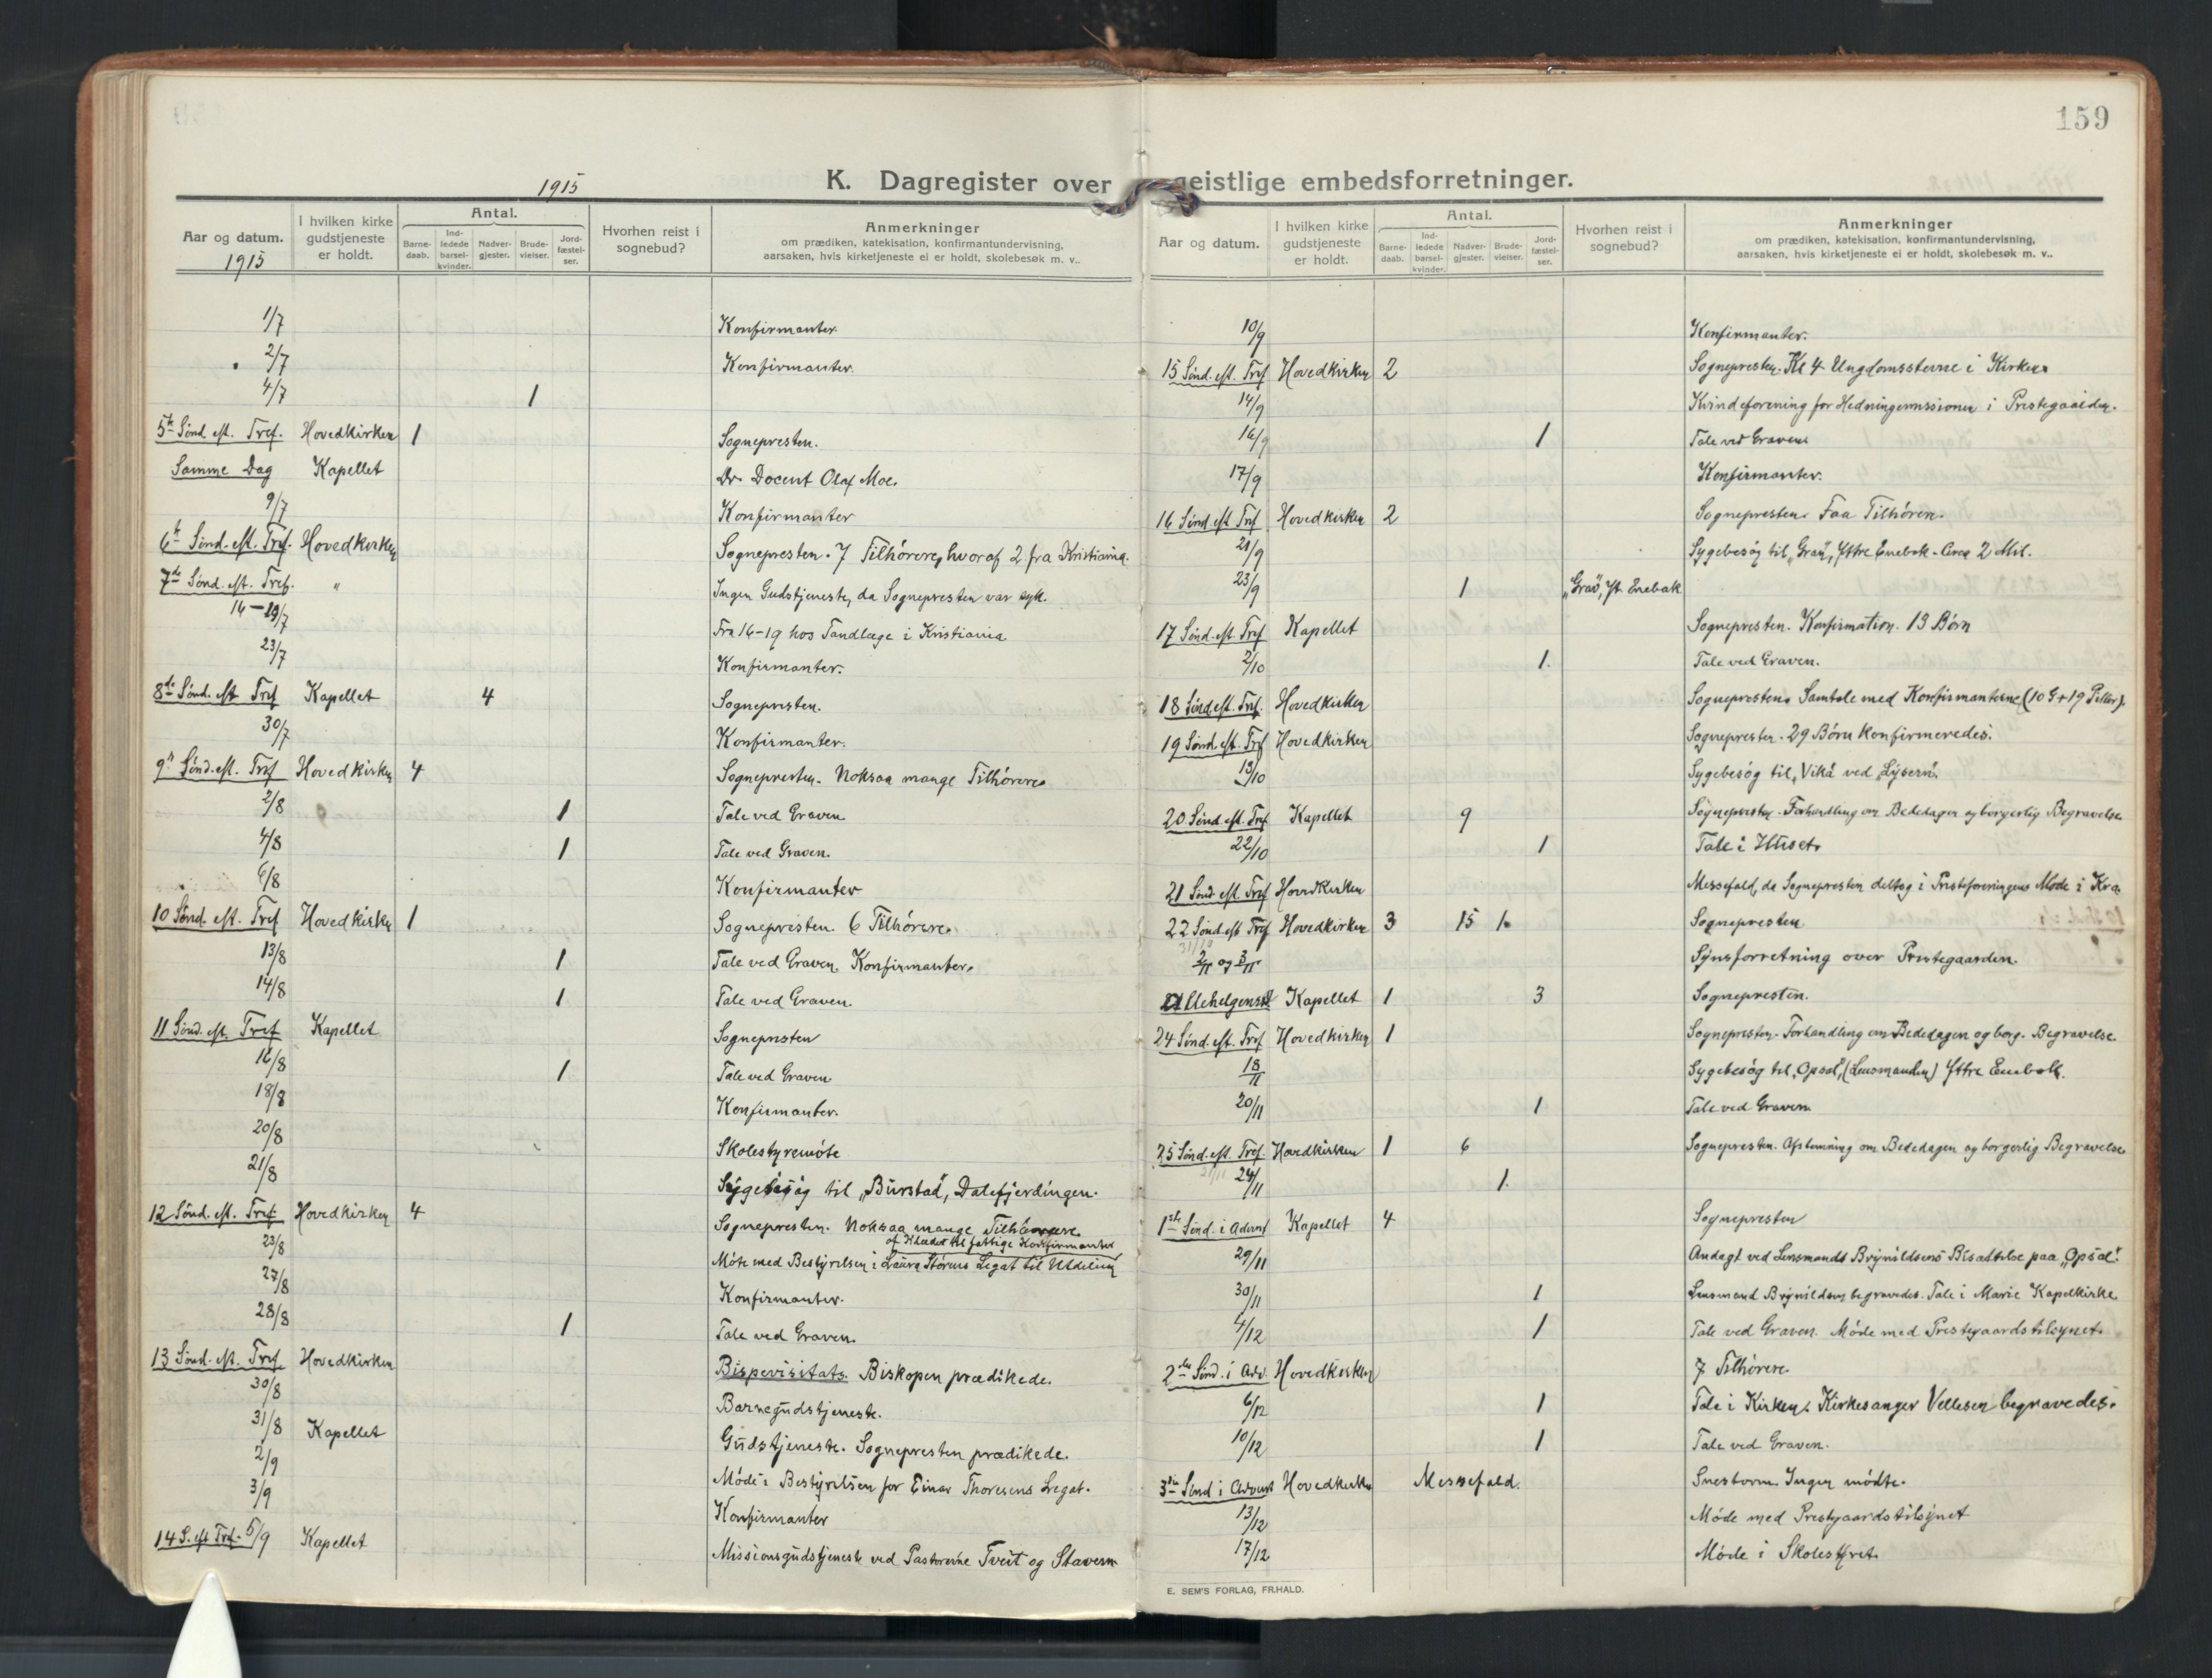 159
1915
K. Dagregister over geistlige embedsforretninger.
Aar og datum. 1915
I hvilken kirke gudstjeneste er holdt.
Antal.
Barne-daab.
Ind-ledede barsel-kvinder.
Nadver-gjester.
Brude-vielser.
Jord-fæstel-ser.
Hvorhen reist i sognebud?
Anmerkninger
om prædiken, katekisation, konfirmantundervisning,
aarsaken, hvis kirketjeneste ei er holdt, skolebesøk m. v..
1/7 Konfirmanter.
2/7 Konfirmanter.
4/7 1
5te Sönd. eft. Tref. Hovedkirken 1 Sognepresten.
Samme Dag Kapellet Dr. Docent Olaf Moe.
9/7 Konfirmanter
6te Sönd. eft. Tref. Hovedkirken Sognepresten. 7 Tilhörere, hvoraf 2 fra Kristiania.
7de Sönd. eft. Tref. " Ingen Gudstjeneste, da Sognepresten var syk.
16-19/7 Fra 16-19 hos Tandlæge i Kristiania
23/7 Konfirmanter.
8de Sönd. eft Tref Kapellet 4 Sognepresten.
30/7 Konfirmanter.
9de Sönd. eft. Tref Hovedkirken 4 Sognepresten. Noksaa mange Tilhörere.
2/8 1 Tale ved Graven
4/8 1 Tale ved Graven.
6/8 Konfirmanter
10 Sönd. eft. Tref Hovedkirken 1 Sognepresten. 6 Tilhörere.
13/8 1 Tale ved Graven. Konfirmanter.
14/8 1 Tale ved Graven.
11 Sönd. eft. Tref Kapellet Sognepresten
16/8 1 Tale ved Graven
18/8 Konfirmanter.
20/8 Skolestyremöte
21/8 Sygebesög til "Burstad", Dalefjerdingen.
12 Sönd. eft. Tref Hovedkirken 4 Sognepresten. Noksaa mange Tilhörere.
af Klæder til fattige Konfirmanter
23/8 Möte med Bestyrelsen i Laura Störens Legat til Utdeling
27/8 Konfirmanter.
28/8 1 Tale ved Graven.
13 Sönd. eft. Tref Hovedkirken Bispevisitats. Biskopen prædikede.
30/8 Barnegudstjeneste.
31/8 Kapellet Gudstjeneste. Sognepresten prædikede.
2/9 Möde i Bestyrelsen for Einar Thoresens Legat.
3/9 Konfirmanter
14 S. eft Tref. 5/9 Kapellet Missionsgudstjeneste ved Pastorerne Tveit og Stavem
Aar og datum.
I hvilken kirke gudstjeneste er holdt.
Antal.
Barne-daab.
Ind-ledede barsel-kvinder.
Nadver-gjester.
Brude-vielser.
Jord-fæstel-ser.
Hvorhen reist i sognebud?
Anmerkninger
om prædiken, katekisation, konfirmantundervisning,
aarsaken, hvis kirketjeneste ei er holdt, skolebesøk m. v..
10/9 Konfirmanter.
15 Sönd. eft. Tref Hovedkirken 2 Sognepresten. Kl 4 Ungdomsstevne i Kirken.
14/9 Kvindeforening for Hedningemissionen i Prestegaarden.
16/9 1 Tale ved Graven
17/9 Konfirmanter.
16 Sönd. eft Tref Hovedkirken 2 Sognepresten. Faa Tilhörere.
21/9 Sygebesög til "Grav", Yttre Enebak. Circa 2 Mil.
23/9 1 "Grav", Yt. Enebak
17 Sönd. eft Tref Kapellet Sognepresten. Konfirmation. 13 Börn
2/10 1. Tale ved Graven.
18 Sönd. eft. Tref. Hovedkirken Sognepresten. Samtale med Konfirmanterne (10 G + 19 Piker).
19 Sönd. eft. Tref Hovedkirken Sognepresten. 29 Börn konfirmeredes.
13/10 Sygebesög til "Vik" ved "Lysern".
20 Sönd. eft. Tref Kapellet 9 Sognepresten. Forhandling om Bededagen og borgerlig Begravelse
22/10 1 Tale i Huset.
21 Sönd. eft. Tref Hovedkirken Messefald, da Sognepresten deltog i Presteforeningens Möde i Kra.
22 Sönd eft Tref Hovedkirken 3 15 1. Sognepresten
31/10
2/11 og 3/11 Synsforretning over Prestegaarden.
Allehelgensd Kapellet 1 3 Sognepresten.
24 Sönd. eft. Tref Hovedkirken 1 Sognepresten. Forhandling om Bededagen og borg. Begravelse.
18/11 Sygebesög til "Opsal", (Lensmanden) Yttre Enebak.
20/11 1 Tale ved Graven
25 Sönd. eft. Tref. Hovedkirken 1 6 Sognepresten. Afstemning om Bededagen og borgerlig Begravelse
21/11
24/11 1.
1ste Sönd. i Advent Kapellet 4 Sognepresten
29/11 Andagt ved Lensmands Brynildsens Bisættelse paa "Opsal".
30/11 1 Lensmand Brynildsen begravedes. Tale i Marie Kapelkirke.
4/12 1 Tale ved Graven. Möde med Prestegaardstilsynet.
2den Sönd. i Adv. Hovedkirken 7 Tilhörere.
6/12 1 Tale i Kirken. Kirkesanger Vellesen begravedes.
10/12 1 Tale ved Graven.
3die Sönd i Advent Hovedkirken Messefald. Snestorm. Ingen mödte.
13/12 Möde med Prestgaardstilsynet
17/12 Möde i Skolestyret.
E. SEM'S FORLAG, FR.HALD.